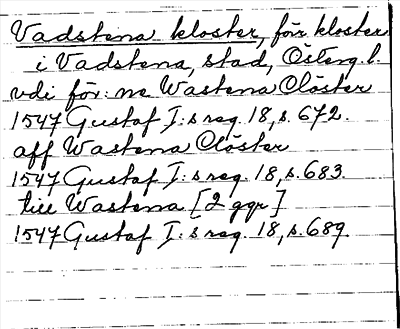 Vadstena kloster, för kloster
i Vadstena, stad, Österg. l.
vdi för: ne Wastena Clöster
1547 Gustaf I:s reg. 18, s. 672.
aff Wastena Clöster
1547 Gustaf I:s reg. 18, s. 683.
till Wastena [2 ggr]
1547 Gustaf I:s reg. 18, s. 689.